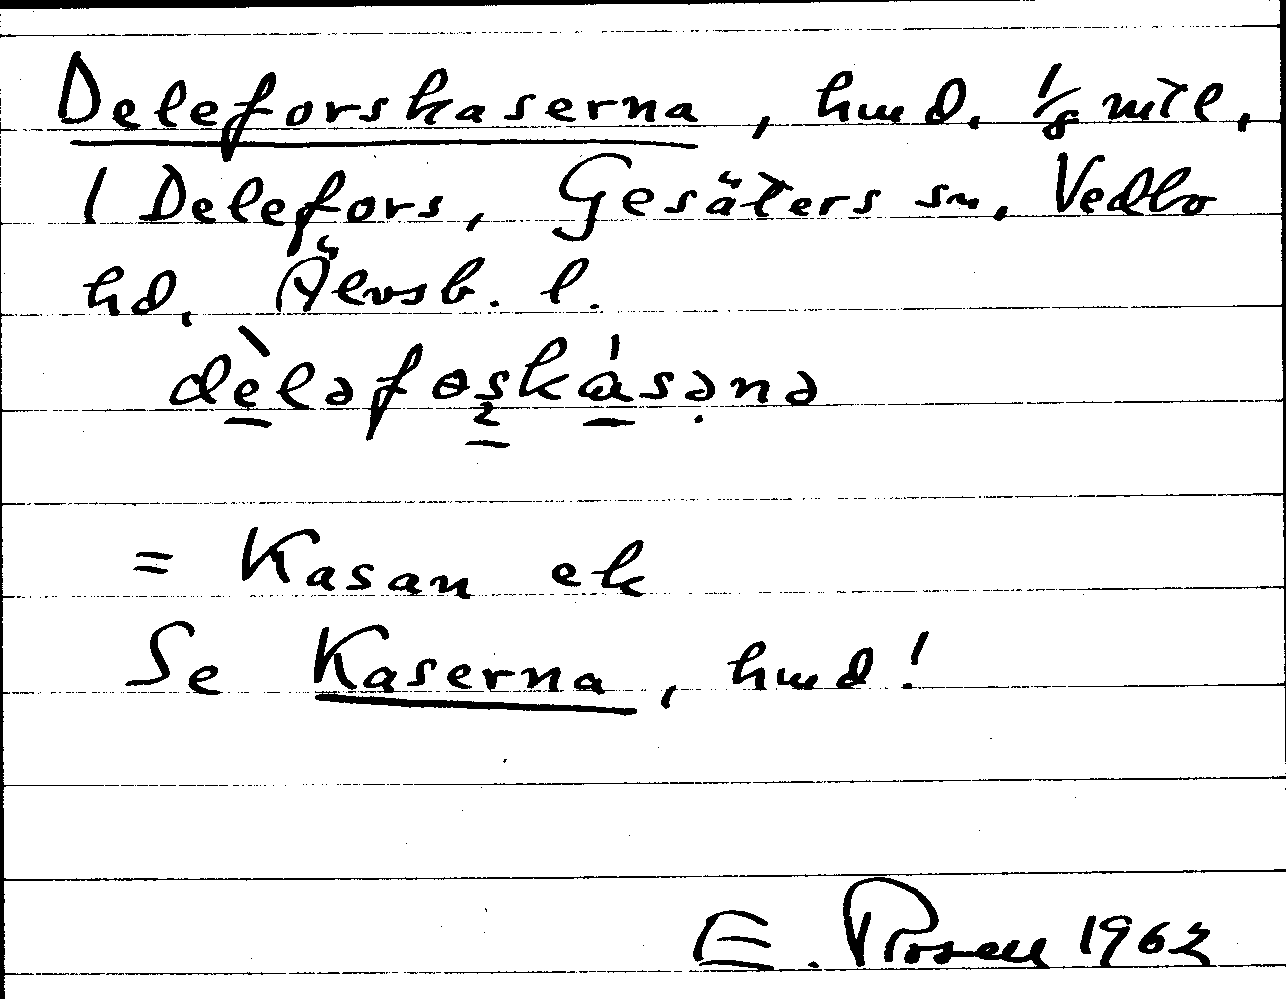 Deleforskaserna, hmd. 1/8 mtl,
1 Delefors, Gesäters sn, Vedbo
hd, Älvsb. l.
dèləfoşkásəṇə
= Kasan ek
Se Kaserna, hmd!
E. Rosell 1962